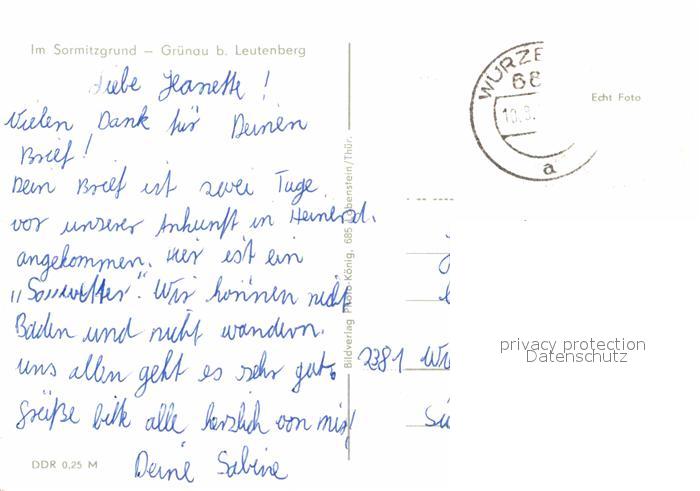 Im Sormitzgrund – Grünau b. Leutenberg
Liebe Jeanette !
Vielen Dank für Deinen
Brief !
Dein Brief ist zwei Tage
vor unserer Ankunft in Heinersd.
angekommen. Hier ist ein
„Sauwetter". Wir können nicht
Baden und nicht wandern.
uns allen geht es sehr gut.
Grüße bitte alle herzlich von mir!
Deine Sabine
DDR 0,25 M
Bildverlag Photo König, 685 Lobenstein/Thür.
WURZE
68
a
Echt Foto
2381
privacy protection
Datenschutz